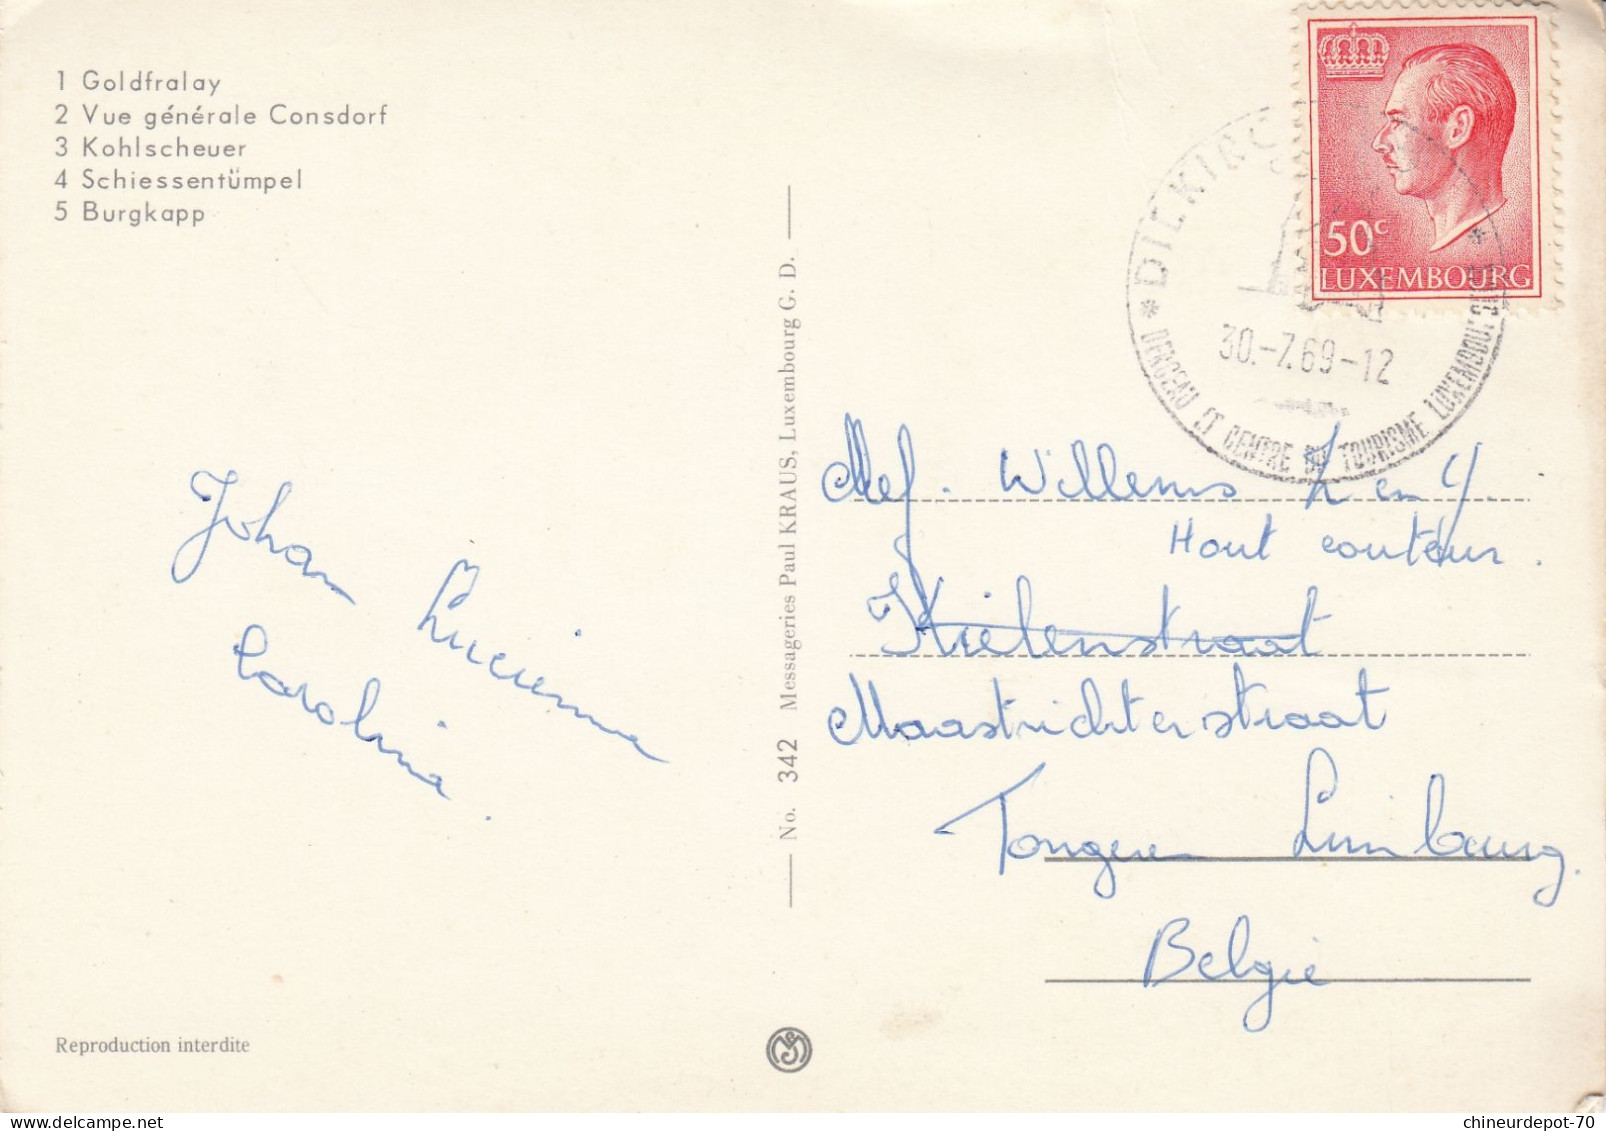 1 Goldfralay
2 Vue générale Consdorf
3 Kohlscheuer
4 Schiessentümpel
5 Burgkapp
50c
LUXEMBOURG
* DIEKIRC
30.-7.69-12
ET CENTRE DU TOURISME
No. 342 Messageries Paul KRAUS, Luxembourg G. D.
Johan Lucienne
Carolina.
Mef. Willems en
Hout
Kielenstraat
Maastrichterstraat
Tongeren Limburg.
Belgie
Reproduction interdite
chineurdepot-70